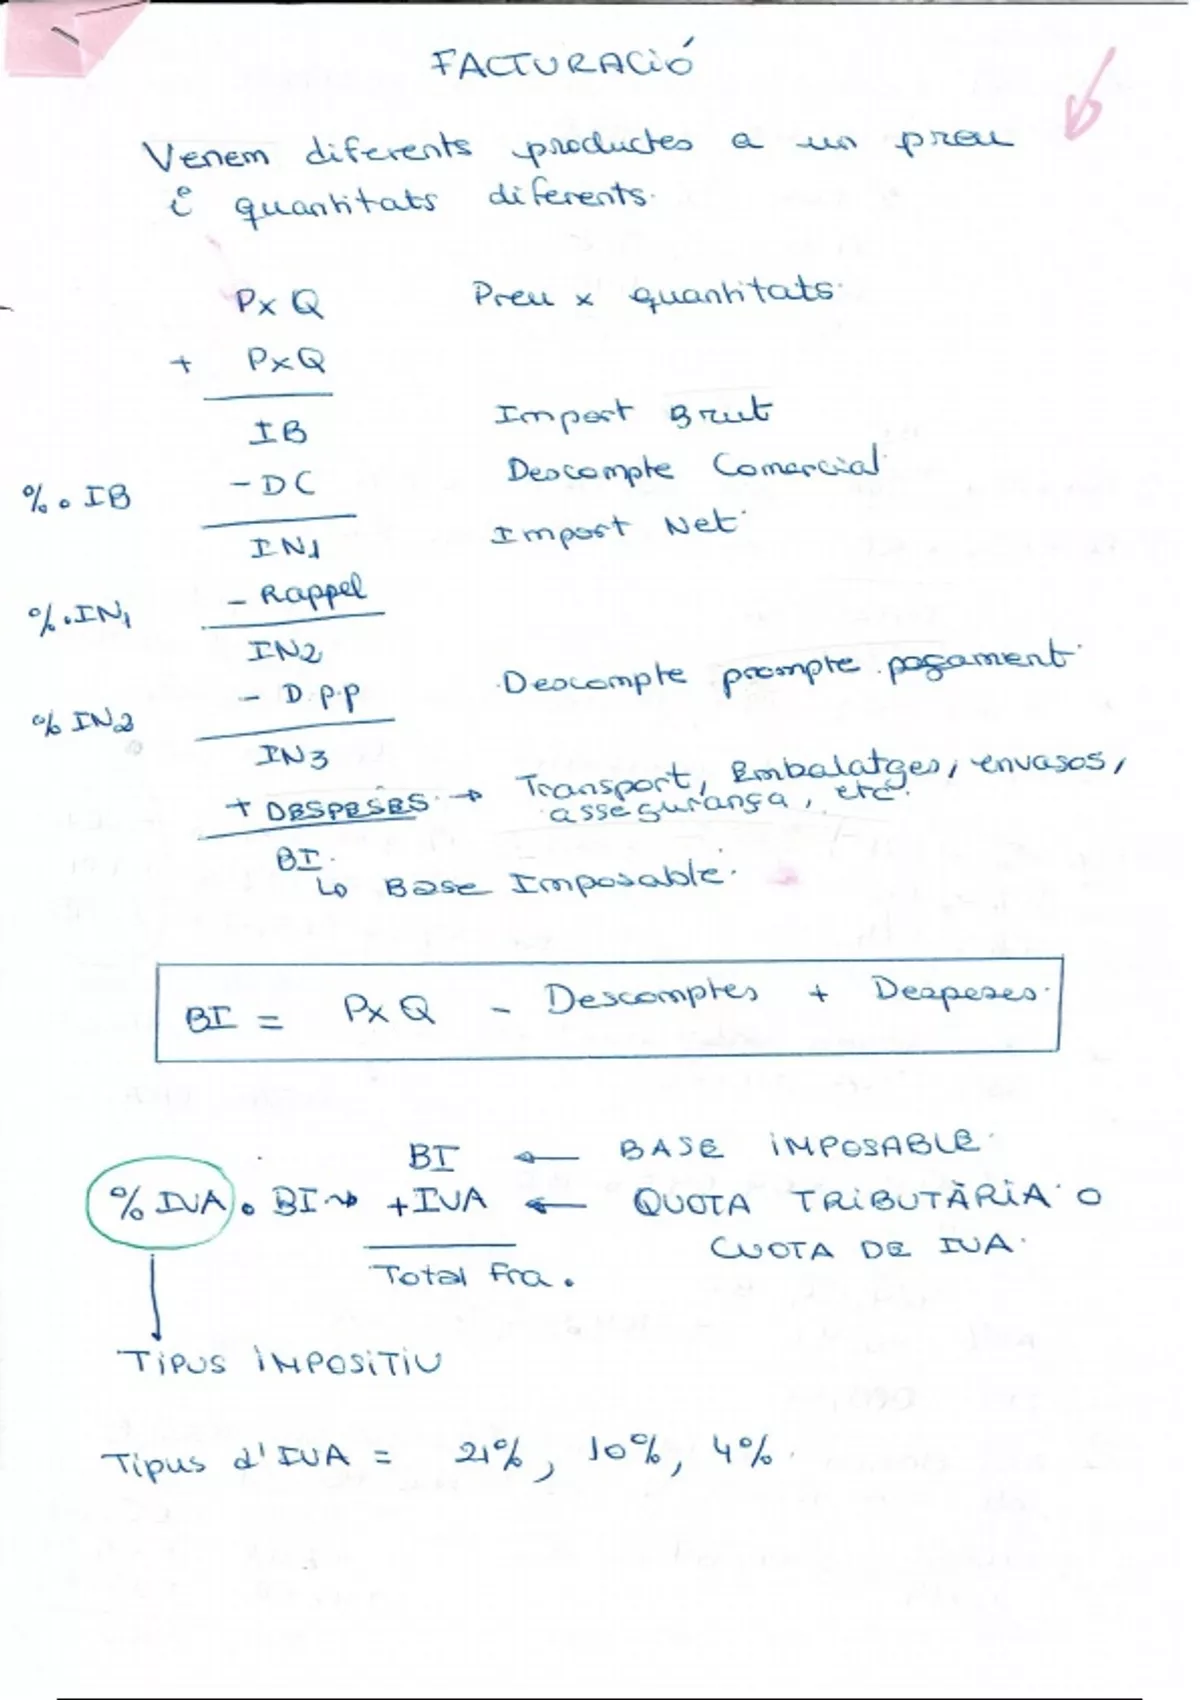 FACTURACIÓ
Venem diferents productes a un preu
i quantitats diferents.
PxQ Preu x quantitats.
+ PxQ
IB Import Brut
%.IB -DC Descompte Comercial
IN1 Import Net.
%.IN1 - Rappel
IN2
% IN2 - D.p.p Descompte prompte pagament.
IN3
+ DESPESES → Transport, Embalatges, envasos,
assegurança, etc.
BI.
↳ Base Imposable.
BI = PxQ - Descomptes + Despeses.
BI ← BASE IMPOSABLE.
% IVA . BI → +IVA ← QUOTA TRIBUTÀRIA O
CUOTA DE IVA.
Total Fra.
TIPUS IMPOSITIU
Tipus d'IVA = 21%, 10%, 4%.